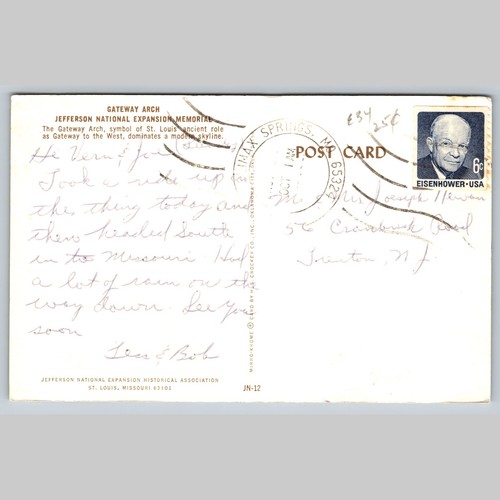 GATEWAY ARCH
JEFFERSON NATIONAL EXPANSION MEMORIAL
The Gateway Arch, symbol of St. Louis' ancient role
as Gateway to the West, dominates a modern skyline.
Took a ride up in
this thing today and
then headed South
in to Missouri Had
a lot of rain on the
way down. See you
soon
& Bob
JEFFERSON NATIONAL EXPANSION HISTORICAL ASSOCIATION
ST. LOUIS, MISSOURI 63102
JN-12
MAX SPRINGS, MO 65324
OCT 1 AM
POST CARD
25¢
6c
EISENHOWER·USA
Joseph
56 Cranbrook Road
Trenton, N.J.